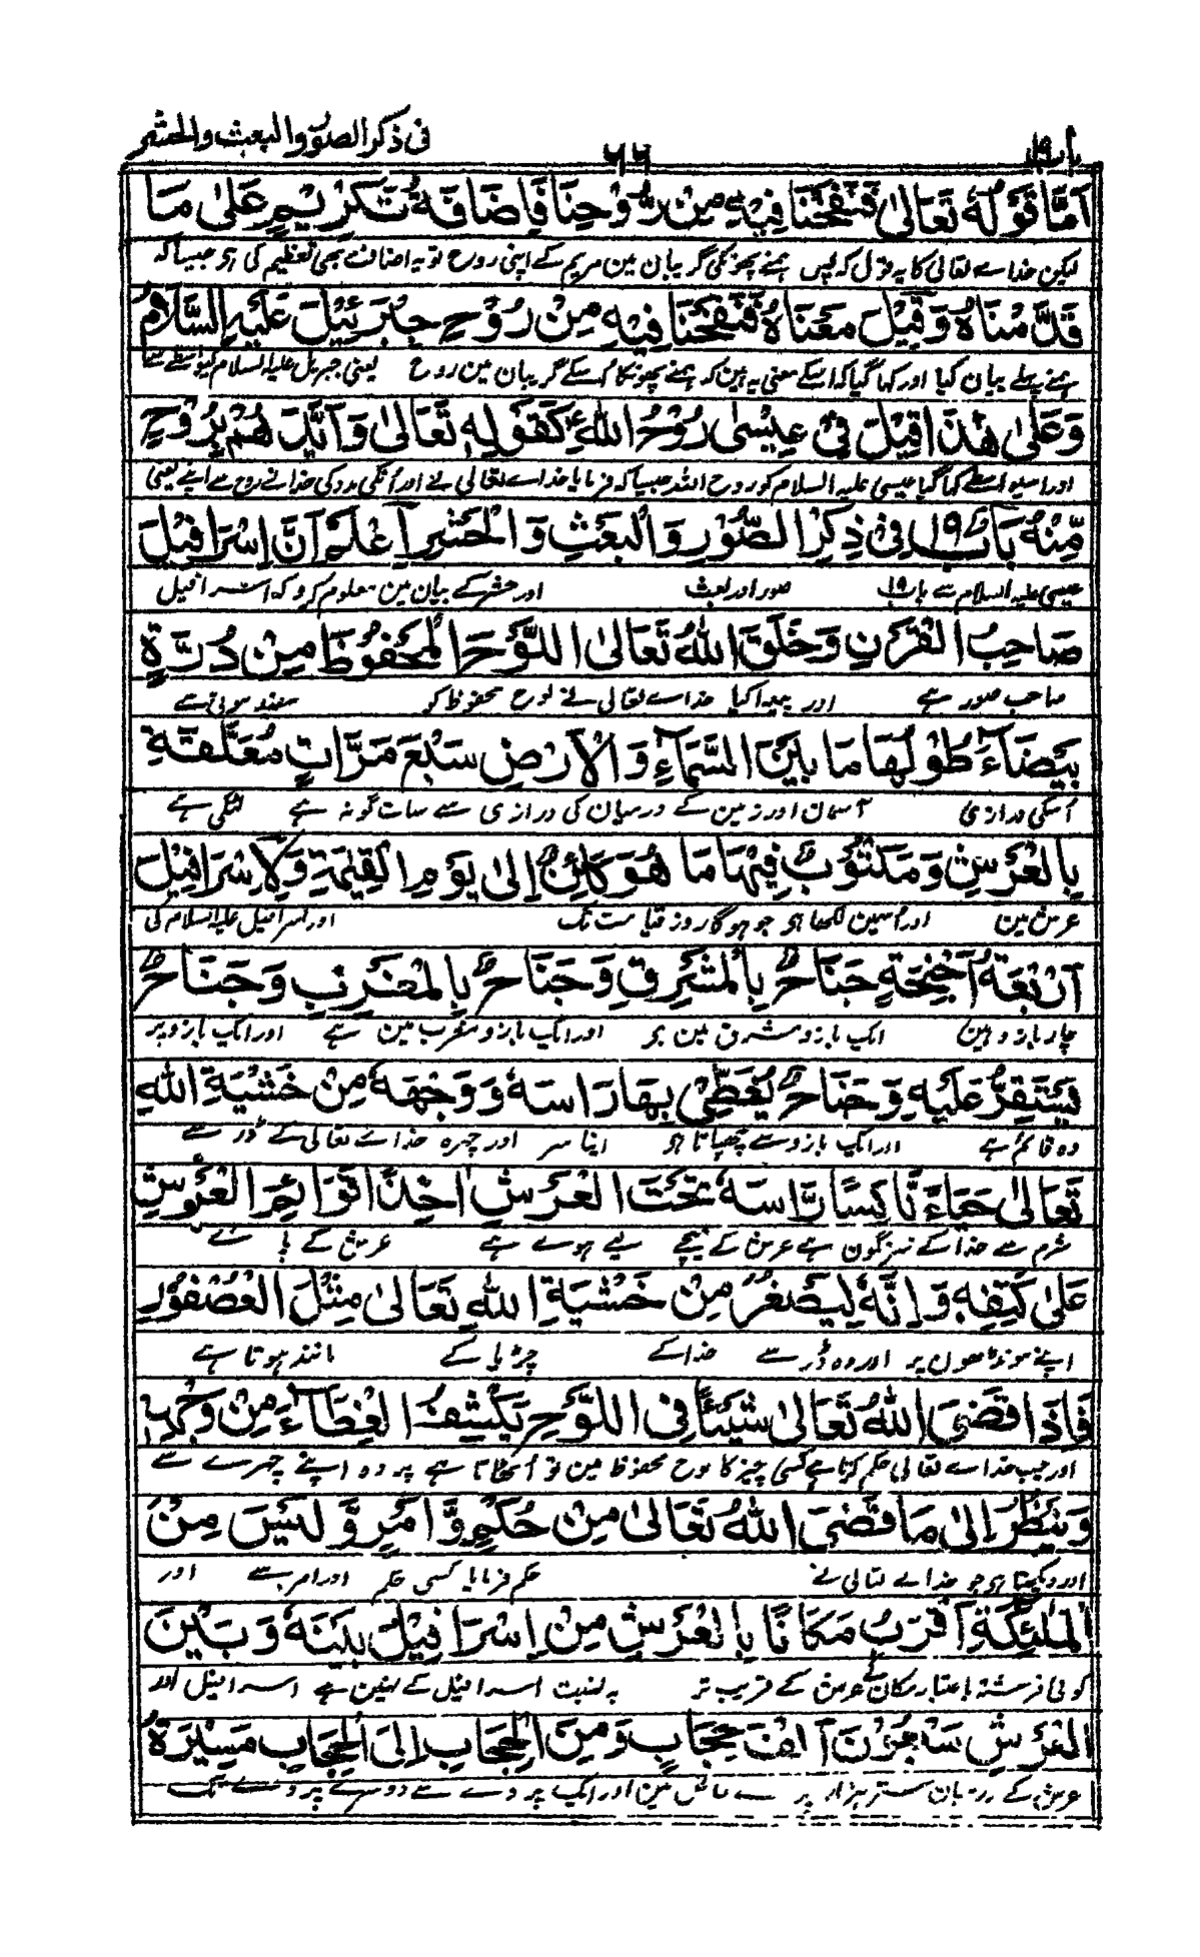 باب ۱۹
۶۶
فی ذکر الصور والبعث والحشر
اَمَّا قَوْلُهٗ تَعَالٰی فَنَفَخْنَا فِيْهِ مِنْ رُّوْحِنَا فَاِضَافَةُ تَكْرِيْمٍ عَلٰی مَا
لیکن خداے تعالی کا یہ قول کہ پس ہمنے پھونکی گریبان مین مریم کے اپنی روح تو یہ اضافت بھی تعظیم کی ہی جیسا کہ
قَدَّمْنَاهُ وَقِيْلَ مَعْنَاهُ فَنَفَخْنَا فِيْهِ مِنْ رُوْحِ جِبْرَئِيْلَ عَلَيْهِ السَّلَامُ
ہمنے پہلے بیان کیا اور کہا گیا کہ اسکے معنی یہ ہین کہ ہمنے پھونکا اسکے گریبان مین روح یعنی جبریل علیہ السلام کیواسطے سے
وَعَلٰی هٰذَا قِيْلَ فِیْ عِيْسٰی رُوْحُ اللهِ كَقَوْلِهٖ تَعَالٰی وَاَيَّدَهُمْ بِرُوْحٍ
اور اسیواسطے کہا گیا عیسی علیہ السلام کو روح اللہ جیسا کہ فرمایا خداے تعالی نے اور اُنکی مدد کی خدا نے روح سے اپنے یعنی
مِّنْهُ بَابُ ۱۹ فِیْ ذِكْرِ الصُّوْرِ وَالْبَعْثِ وَالْحَشْرِ اَعْلَمْ اَنَّ اِسْرَافِيْلَ
عیسی علیہ السلام سے باب ۱۹ صور اور بعث اور حشر کے بیان مین معلوم کرو کہ اسرافیل
صَاحِبُ الْقَرْنِ وَخَلَقَ اللهُ تَعَالٰی اللَّوْحَ الْمَحْفُوْظَ مِنْ دُرَّةٍ
صاحب صور ہے اور پیدا کیا خداے تعالی نے لوح محفوظ کو سفید موتی سے
بَيْضَاءَ طُوْلُهَا مَا بَيْنَ السَّمَآءِ وَالْاَرْضِ سَبْعَ مَرَّاتٍ مُعَلَّقَةٍ
اُسکی درازی آسمان اور زمین کے درمیان کی درازی سے سات گونہ ہے لٹکی ہے
بِالْعَرْشِ وَمَكْتُوْبٌ فِيْهَا مَا هُوَ كَائِنٌ اِلٰی يَوْمِ الْقِيٰمَةِ وَلِاِسْرَافِيْلَ
عرش مین اور اُسمین لکھا ہو جو ہوگا روز قیامت تک اور اسرافیل علیہ السلام کی
اَرْبَعَةُ اَجْنِحَةٍ جَنَاحٌ بِالْمَشْرِقِ وَجَنَاحٌ بِالْمَغْرِبِ وَجَنَاحٌ
چار بازو ہین ایک بازو مشرق مین ہو اور ایک بازو مغرب مین ہے اور ایک بازو پر
يَسْتَقِرُّ عَلَيْهِ وَجَنَاحٌ يُغَطِّیْ بِهَا رَاسَهٗ وَوَجْهَهٗ مِنْ خَشْيَةِ اللهِ
وہ قائم ہے اور ایک بازو سے چھپاتا ہو اپنا سر اور چہرہ خداے تعالی کے ڈر سے
تَعَالٰی حَيَاءً نَّاكِسًا رَّاسَهٗ تَحْتَ الْعَرْشِ اٰخِذًا قَوَائِمَ الْعَرْشِ
شرم سے خدا کے سرنگون ہے عرش کے نیچے لیے ہوے ہے عرش کے پا ئے
عَلٰی كَتِفِهٖ وَاِنَّهٗ لَيَصْغُرُ مِنْ خَشْيَةِ اللهِ تَعَالٰی مِثْلَ الْعُصْفُوْرِ
اپنے مونڈھون پر اور وہ ڈر سے خدا کے چڑیا کے مانند ہوتا ہے
فَاِذَا قَضَی اللهُ تَعَالٰی شَيْئًا فِی اللَّوْحِ يَكْشِفُ الْغِطَاءَ مِنْ وَجْهِهٖ
اور جب خداے تعالی حکم کرتا ہے کسی چیز کا لوح محفوظ مین تو اُٹھاتا ہے پردہ اپنے چہرے سے
وَيَنْظُرُ اِلٰی مَا قَضَی اللهُ تَعَالٰی مِنْ حُكْمٍ وَّاَمْرٍ وَّلَيْسَ مِنَ
اور دیکھتا ہو جو خداے تعالی نے حکم فرمایا کسی حکم اور امر سے اور
الْمَلٰئِكَةِ اَقْرَبُ مَكَانًا بِالْعَرْشِ مِنْ اِسْرَافِيْلَ بَيْنَهٗ وَبَيْنَ
کوئی فرشتہ باعتبار مکان کے عرش کے قریب تر بہ نسبت اسرافیل کے نہین ہے اسرافیل اور
الْعَرْشِ سَبْعُوْنَ اَلْفَ حِجَابٍ وَمِنَ الْحِجَابِ اِلَی الْحِجَابِ مَسِيْرَةُ
عرش کے درمیان ستر ہزار پر دے حائل ہین اور ایک پردے سے دوسرے پردے تک